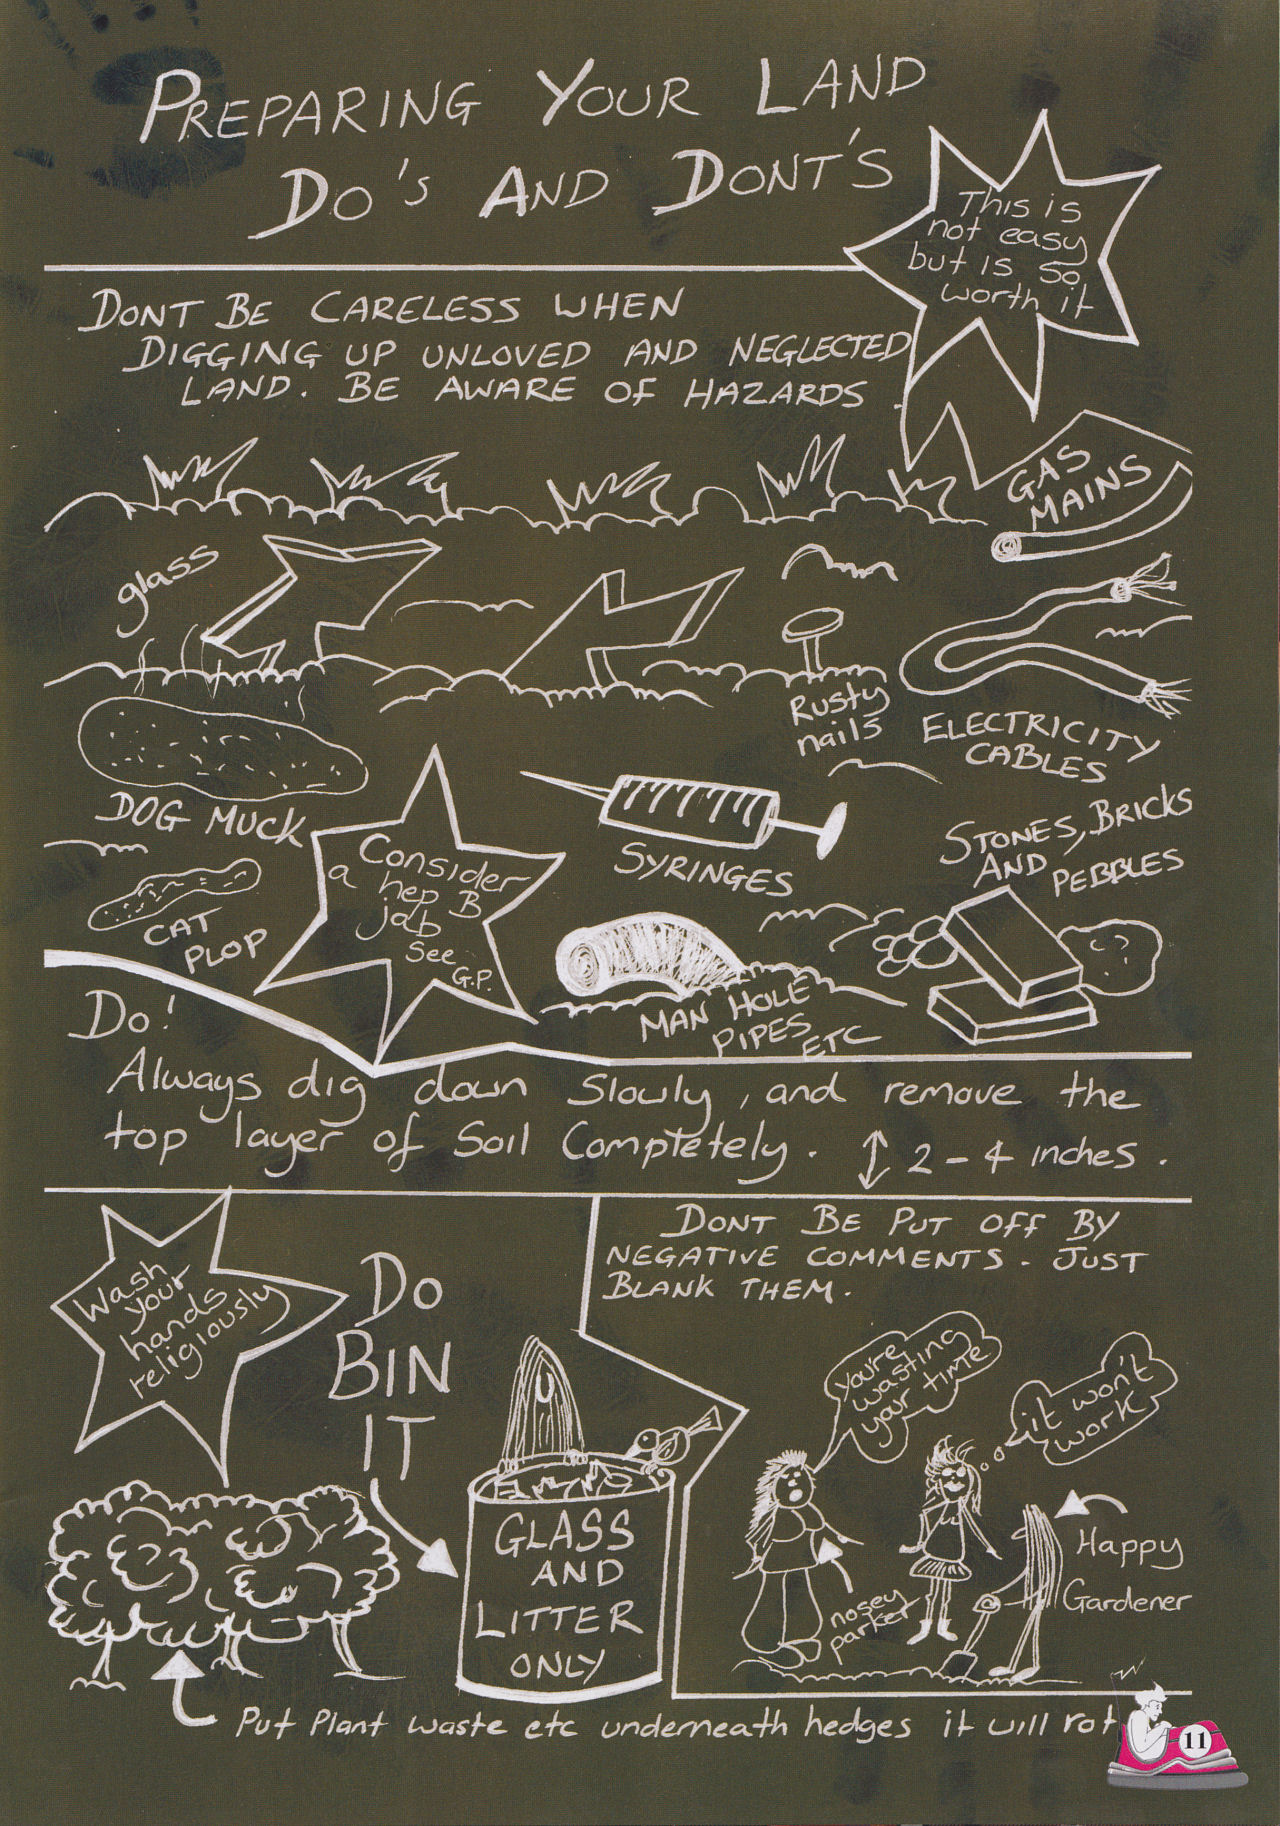 PREPARING YOUR LAND
DO'S AND DONT'S
This is
not easy
but is so
worth it
DONT BE CARELESS WHEN
DIGGING UP UNLOVED AND NEGLECTED
LAND. BE AWARE OF HAZARDS.
GAS
MAINS
glass
Rusty
nails
ELECTRICITY
CABLES
DOG MUCK
Consider
a hep B
jab
see
G.P.
SYRINGES
STONES, BRICKS
AND PEBBLES
CAT
PLOP
MAN HOLE
PIPES
ETC
Do!
Always dig down slowly, and remove the
top layer of Soil Completely. 2-4 inches.
Wash
your
hands
religiously
DO
BIN
IT
DONT BE PUT OFF BY
NEGATIVE COMMENTS. JUST
BLANK THEM.
you're
wasting
your time
it won't
work
GLASS
AND
LITTER
ONLY
nosey
parker
Happy
Gardener
Put Plant waste etc underneath hedges it will rot
11